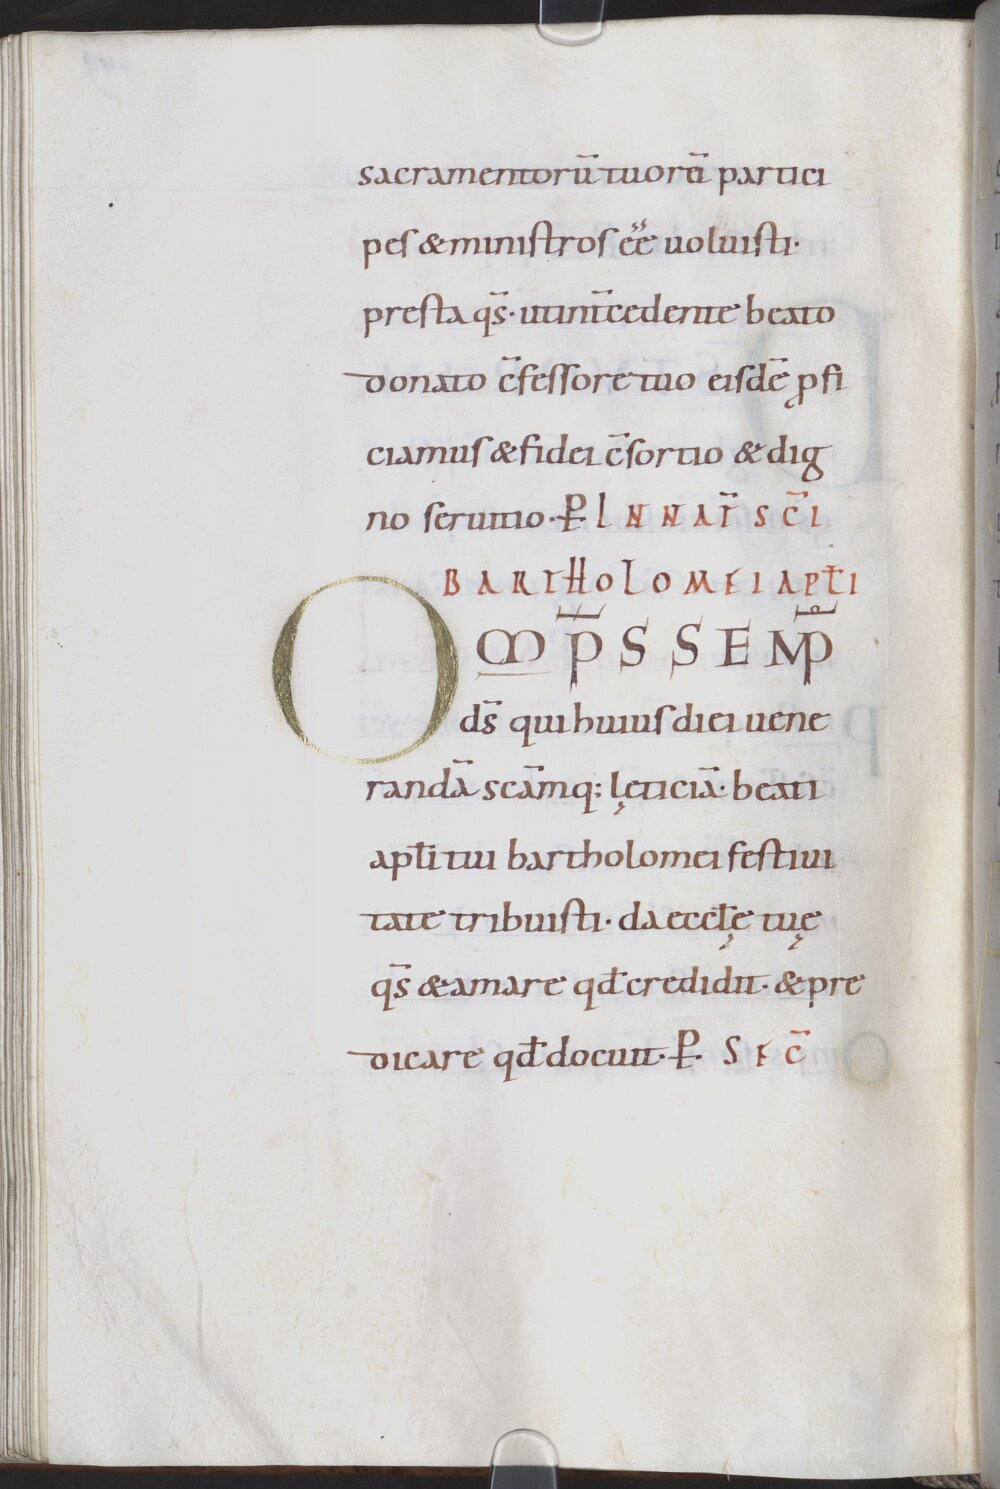 sacramentorū tuorū partici
pes & ministros ēe uoluisti·
presta qs̄· ut int̄cedente beato
donato c̄fessore tuo eisdē ꝓfi
ciamus & fidei c̄sortio & dig
no seruitio· ꝑ IN NAT̄ SC̄I
BARTHOLOMEI APŁI
OMP̄S SEMP̄
ds̄ qui huius diei uene
randā scāmq; lęticiā· beati
apłi tui bartholomei festiui
tate tribuisti· da eccłę tuę
qs̄ & amare qđ credidit· & pre
dicare qđ docuit· ꝑ SEC̄